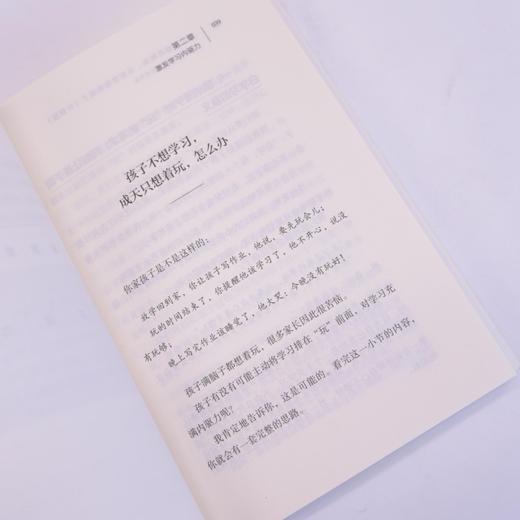 039
第二章
激发学习内驱力
孩子不想学习，
成天只想着玩，怎么办
你家孩子是不是这样的：
放学回到家，你让孩子写作业，他说，要先玩会儿；
玩的时间结束了，你提醒他该学习了，他不开心，说没
有玩够；
晚上写完作业该睡觉了，他大哭：今晚没有玩好！
孩子满脑子都想着玩，很多家长因此很苦恼。
孩子有没有可能主动将学习排在“玩”前面，对学习充
满内驱力呢？
我肯定地告诉你，这是可能的。看完这一小节的内容，
你就会有一套完整的思路。